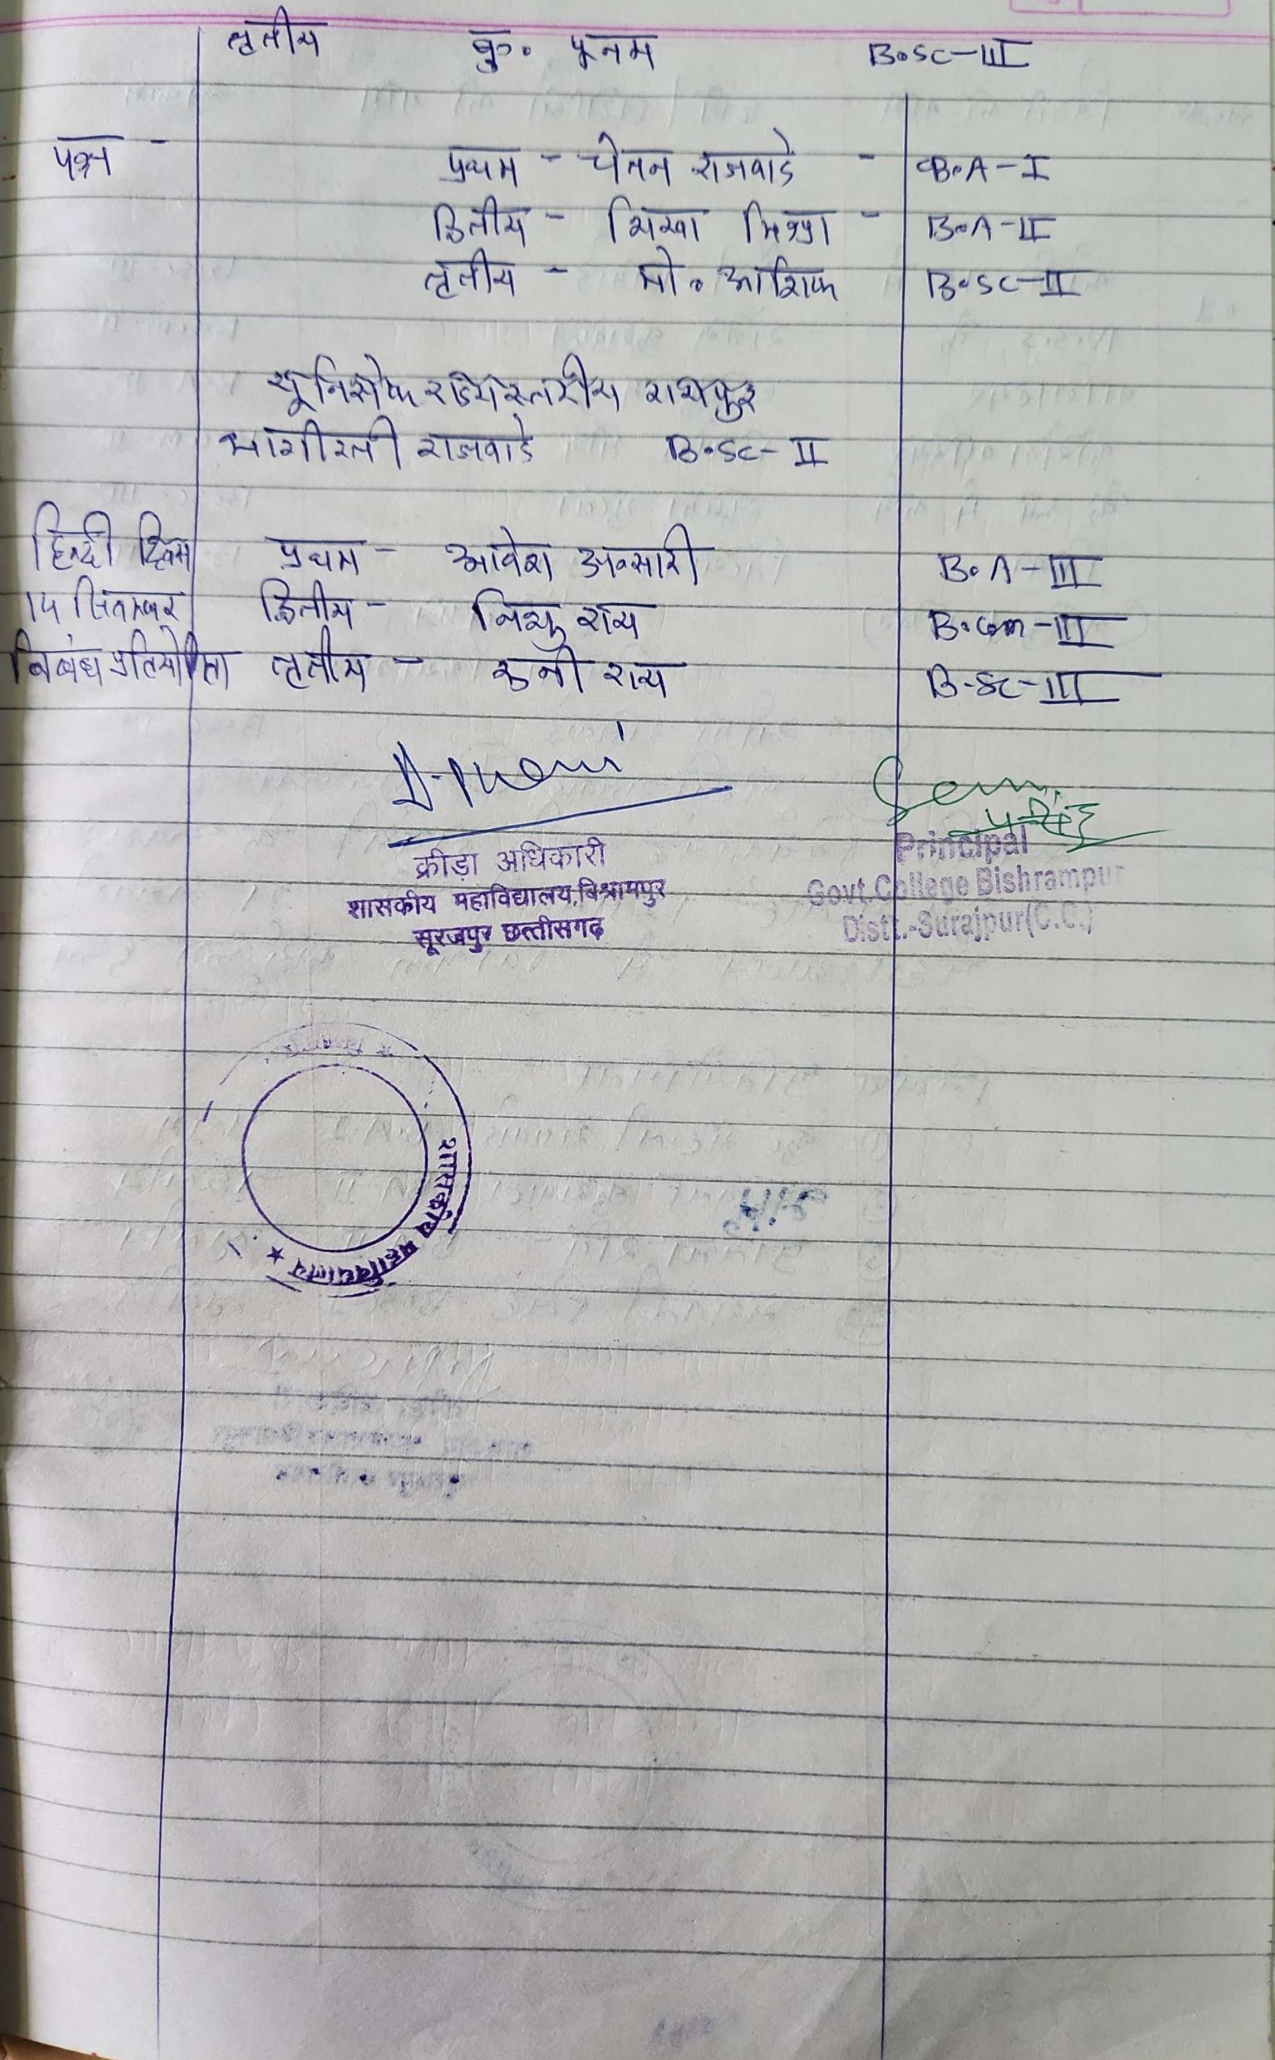 तृतीय कु. पूनम B.SC-III
प्रश्न - प्रथम - चेतन राजवाडे - B.A-I
द्वितीय - शिखा मिश्रा - B.A-II
तृतीय - मो. आशिक B.SC-II
यूनिसेफ राज्यस्तरीय रायपुर
भागीरती राजवाडे B.SC-II
हिन्दी दिवस प्रथम - आवेश अन्सारी B.A-III
14 सितम्बर द्वितीय - निशु राय B.Com-III
निबंध प्रतियोगिता तृतीय - रूनी राय B-SC-III
क्रीड़ा अधिकारी
शासकीय महाविद्यालय, विश्रामपुर
सूरजपुर छत्तीसगढ़
Principal
Govt. College Bishrampur
Distt.-Surajpur(C.G.)
शासकीय महाविद्यालय